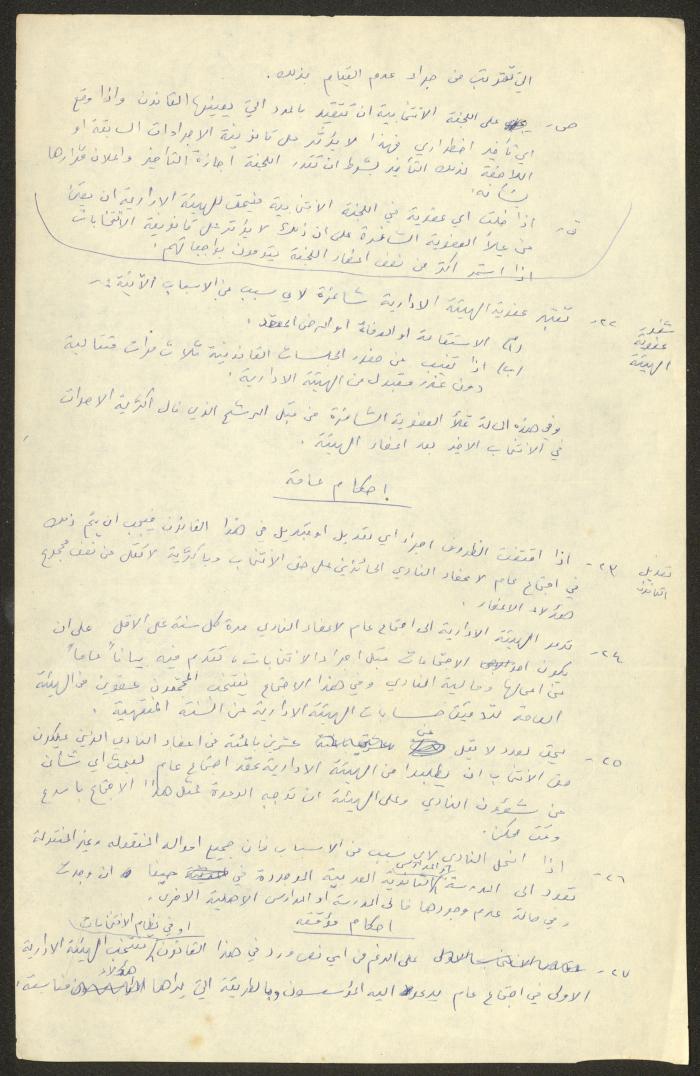 التي تترتب من جراء عدم القيام بذلك.
ص - على اللجنة الانتخابية ان تتقيد بالمدد التي يعينها القانون واذا وقع
اي تأخير اضطراري فهذا لا يؤثر على قانونية الاجراءات السابقة او
اللاحقة لذلك التأخير بشرط ان تقرر اللجنة اجازة التأخير واعلان قرارها
بشأنه.
ق - اذا خلت اي عضوية في اللجنة الانتخابية فيحق للهيئة الادارية ان تعين
من يملأ العضوية الشاغرة على ان ذلك لا يؤثر على قانونية الانتخابات
اذا استمر اكثر من نصف اعضاء اللجنة يقومون بواجباتهم.
شغور عضوية الهيئة
٢٢ - تعتبر عضوية الهيئة الادارية شاغرة لاي سبب من الاسباب الآتية :-
(أ) الاستقالة او الوفاة او المرض المقعد.
(ب) اذا تغيب عن حضور الجلسات القانونية ثلاث مرات متتالية
دون عذر مقبول من الهيئة الادارية.
وفي هذه الحالة تملأ العضوية الشاغرة من قبل المرشح الذي نال اكثرية الاصوات
في الانتخاب الاخير بعد اعضاء الهيئة.
احكام عامة
تعديل القانون
٢٣ - اذا اقتضت الظروف اجراء اي تعديل او تبديل في هذا القانون فيجب ان يتم ذلك
في اجتماع عام لاعضاء النادي الحائزين على حق الانتخاب وباكثرية لا تقل عن نصف مجموع
هؤلاء الاعضاء.
٢٤ - تدعو الهيئة الادارية الى اجتماع عام لاعضاء النادي مرة كل سنة على الاقل على ان
يكون احد الاجتماعات قبل اجراء الانتخابات، تقدم فيه بياناً عاماً
عن اعمالها ومالية النادي وفي هذا الاجتماع ينتخب المجتمعون عضوين من الهيئة
العامة لتدقيق حسابات الهيئة الادارية عن السنة المنتهية.
٢٥ - يحق لعدد لا يقل عن عشرين بالمئة من اعضاء النادي الذين يملكون
حق الانتخاب ان يطلبوا من الهيئة الادارية عقد اجتماع عام لبحث اي شأن
من شؤون النادي وعلى الهيئة ان توجه الدعوة لمثل هذا الاجتماع باسرع
وقت ممكن.
٢٦ - اذا انحل النادي لاي سبب من الاسباب فان جميع امواله المنقولة وغير المنقولة
تعود الى المدرسة او المدارس الثانوية العربية الموجودة في حيفا ان وجدت
وفي حالة عدم وجودها فالى المدرسة او المدارس الاهلية الاخرى.
احكام مؤقتة
٢٧ - على الرغم من اي نص ورد في هذا القانون او في نظام الانتخابات تنتخب الهيئة الادارية
الاولى في اجتماع عام يدعو اليه المؤسسون وبالطريقة التي يراها هؤلاء مناسبة.